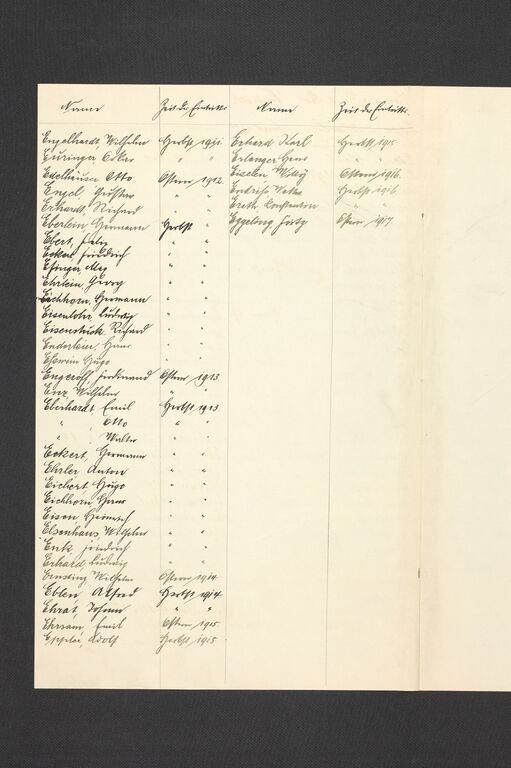 Name Zeit des Eintritts Name Zeit des Eintritts.
Engelhardt Wilhelm Herbst 1911.
Euringer Oskar " "
Edelhäuser Otto Ostern 1912.
Engel, Gustav " "
Erhardt, Richard " "
Eberlein Hermann Herbst "
Ebert, Felix " "
Eckert, Friedrich " "
Efinger, Max " "
Ehrlein Georg " "
Eichhorn, Hermann " "
Eisenlohr, Ludwig " "
Eisenstuck, Richard " "
Enderlein, Hans " "
Hugo " "
Engeroff, Ferdinand Ostern 1913.
Enz, Wilhelm " "
Eberhardt Emil Herbst 1913.
" Otto " "
" Walter " "
Eckert, Hermann " "
Ehrler Anton " "
Eichert Hugo " "
Eichhorn Hans " "
Eisen Heinrich " "
Elsenhans Wilhelm " "
Enk Friedrich " "
Erhard, Ludwig " "
Wilhelm Ostern 1914
Eblen, Alfred Herbst 1914.
Ehrat, Johann " "
Ehrsam, Emil Ostern 1915
Eppler, Adolf Herbst 1915
Erhard Karl Herbst 1915
Erlanger Hans " "
Eiselen Willy Ostern 1916.
Herbst 1916
" "
Ostern 1917.